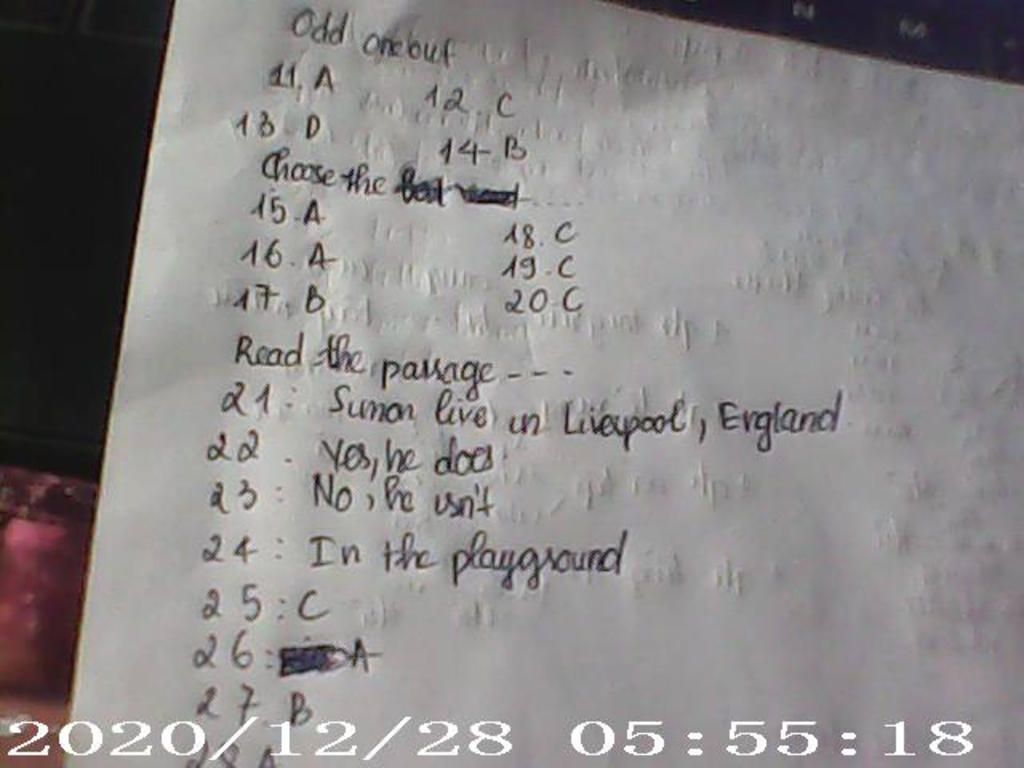 Odd one out
11. A 12. C
13 D 14- B
Choose the
15. A 18. C
16. A 19. C
17. B 20 C
Read the passage ---
21: Simon live in Liverpool, England
22. Yes, he does
23: No, he isn't
24: In the playground
25: C
26: A
27 B
28 A
2020/12/28 05:55:18
N M